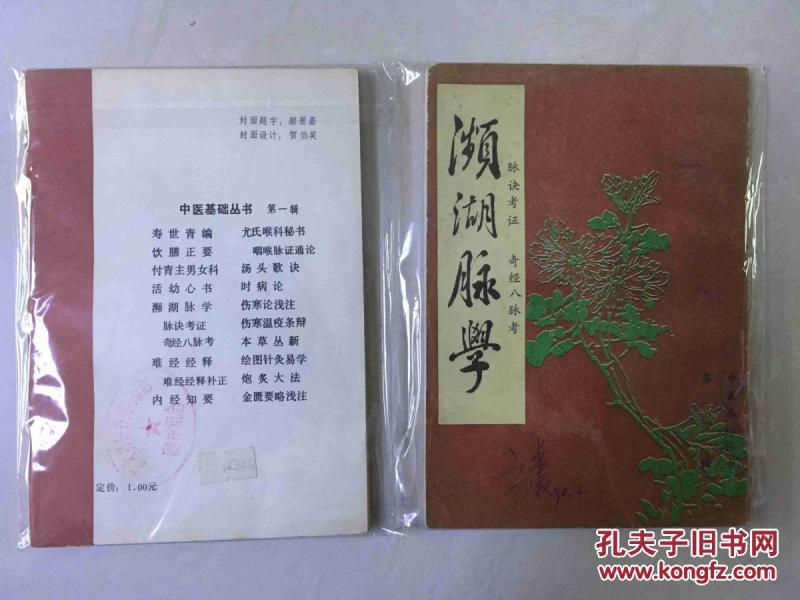 封面题字：郝景晏
封面设计：贺伯英
中医基础丛书 第一辑
寿世青编
饮膳正要
付青主男女科
活幼心书
濒湖脉学
脉诀考证
奇经八脉考
难经经释
难经经释补正
内经知要
尤氏喉科秘书
咽喉脉证通论
汤头歌诀
时病论
伤寒论浅注
伤寒温疫条辩
本草丛新
绘图针灸易学
炮炙大法
金匮要略浅注
定价：1.00元
濒湖脉學
脉诀考证 奇经八脉考
孔夫子旧书网
www.kongfz.com